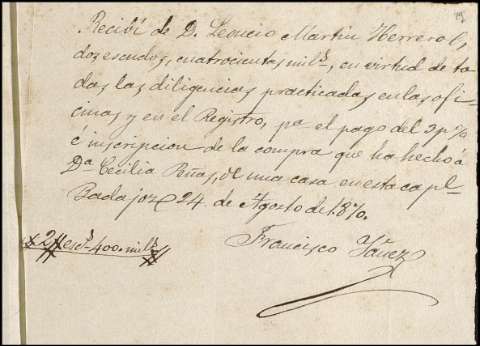 Recibí de D. Leoncio Martin Herrero,
dos escudos, cuatrocientas mils, en virtud de to
das las diligencias practicadas en las ofi
cinas y en el Registro, pa el pago del 3 p%
é inscripcion de la compra que ha hecho á
Da Cecilia Peñas, de una casa en esta capl
Badajoz 24 de Agosto de 1870.
Francisco Yañez
2 escs 400 mils